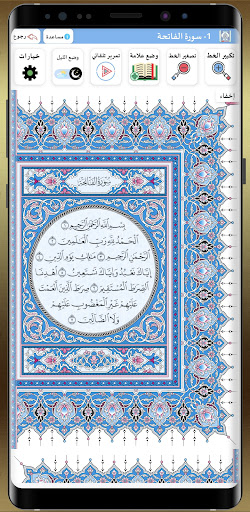 1 - سورة الفاتحة
مساعدة
رجوع
تكبير الخط
تصغير الخط
وضع علامة
تمرير تلقائي
وضع الليل
خيارات
إخفاء
سُورَةُ الفَاتِحَةِ
بِسْمِ ٱللَّهِ ٱلرَّحْمَٰنِ ٱلرَّحِيمِ ۝١
ٱلْحَمْدُ لِلَّهِ رَبِّ ٱلْعَٰلَمِينَ ۝٢
ٱلرَّحْمَٰنِ ٱلرَّحِيمِ ۝٣ مَٰلِكِ يَوْمِ ٱلدِّينِ ۝٤
إِيَّاكَ نَعْبُدُ وَإِيَّاكَ نَسْتَعِينُ ۝٥ ٱهْدِنَا
ٱلصِّرَٰطَ ٱلْمُسْتَقِيمَ ۝٦ صِرَٰطَ ٱلَّذِينَ أَنْعَمْتَ
عَلَيْهِمْ غَيْرِ ٱلْمَغْضُوبِ عَلَيْهِمْ
وَلَا ٱلضَّآلِّينَ ۝٧